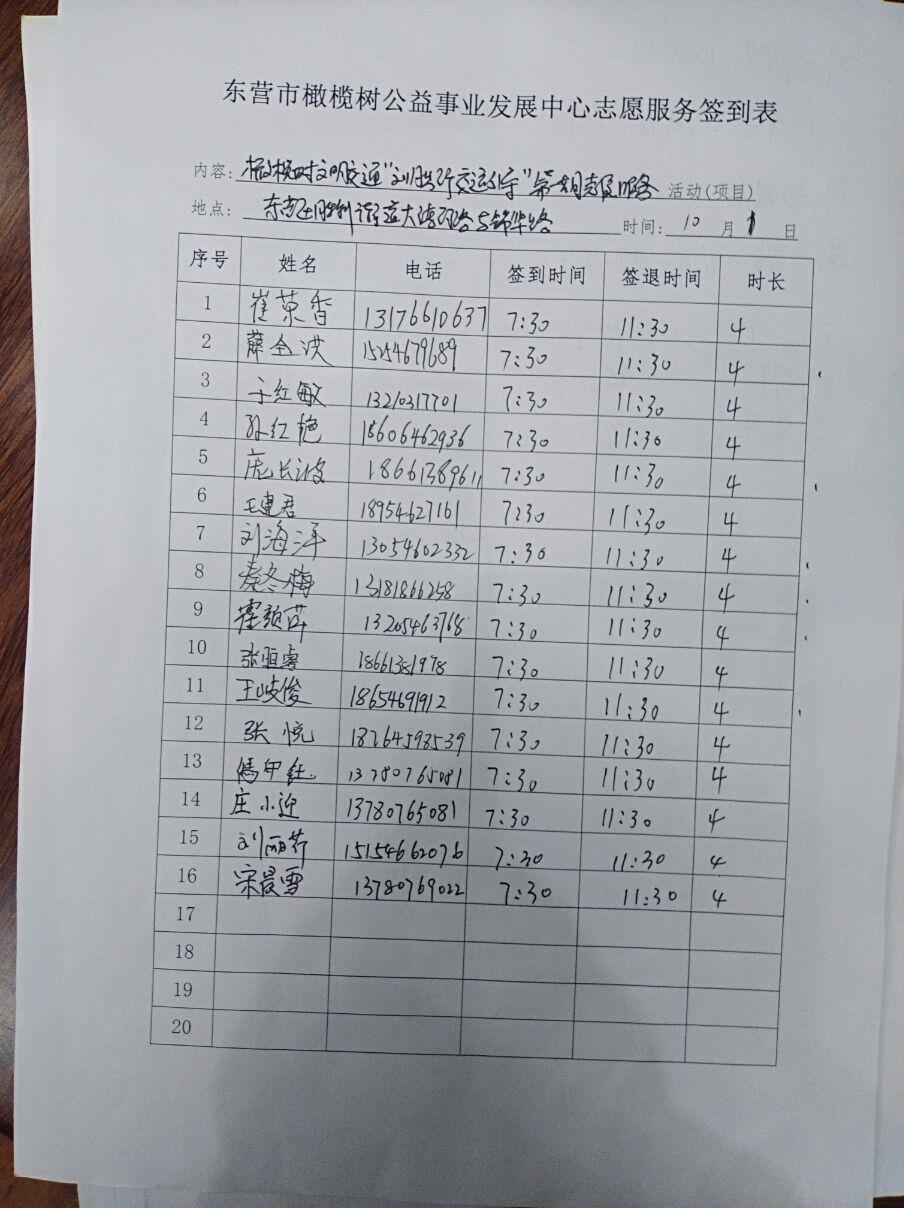 东营市橄榄树公益事业发展中心志愿服务签到表
内容：橄榄树文明交通 服务 活动(项目)
地点： 时间： 10 月 1 日
序号 姓名 电话 签到时间 签退时间 时长
1 崔荣香 13176610637 7:30 11:30 4
2 薛全洪 15254679689 7:30 11:30 4
3 于红敏 13210317701 7:30 11:30 4
4 孙红艳 18606462936 7:30 11:30 4
5 庞长波 18661389611 7:30 11:30 4
6 王建君 18954627161 7:30 11:30 4
7 刘海洋 13054602332 7:30 11:30 4
8 秦冬梅 13181866258 7:30 11:30 4
9 霍颖萍 13205463768 7:30 11:30 4
10 张恒睿 18661381978 7:30 11:30 4
11 王岐俊 18654691912 7:30 11:30 4
12 张悦 18264598539 7:30 11:30 4
13 13780765081 7:30 11:30 4
14 庄小迎 13780765081 7:30 11:30 4
15 刘丽芹 15154662076 7:30 11:30 4
16 宋晨雪 13780769022 7:30 11:30 4
17
18
19
20